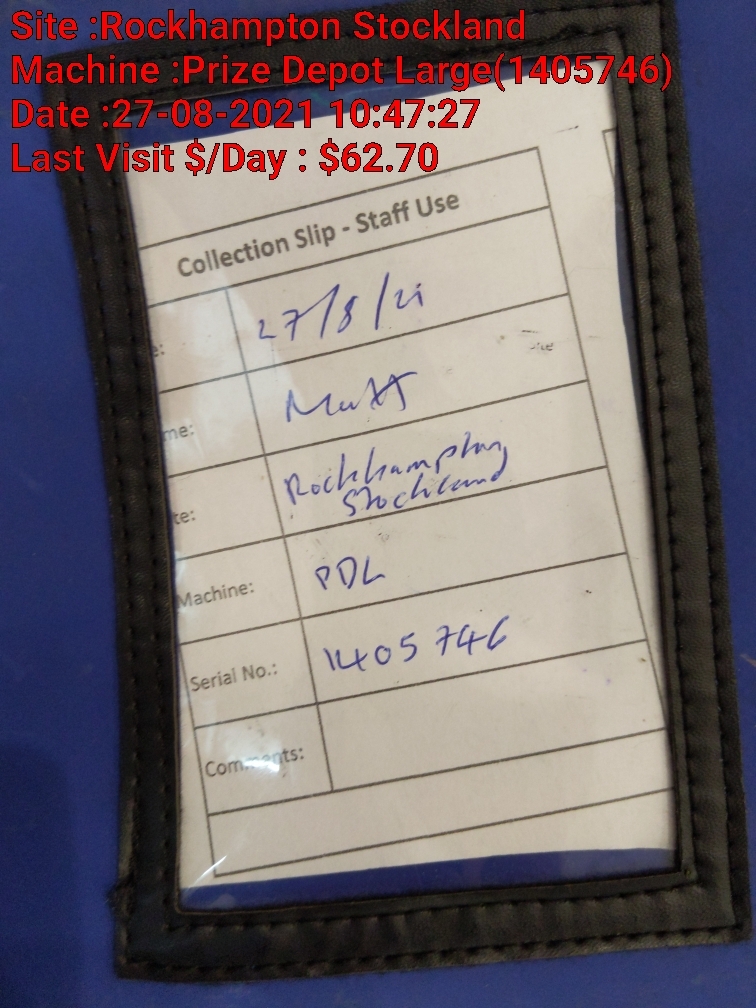 Site :Rockhampton Stockland
Machine :Prize Depot Large(1405746)
Date :27-08-2021 10:47:27
Last Visit $/Day : $62.70
Collection Slip - Staff Use
e: 27/8/21
me: Matt
te: Rockhampton
Stockland
Machine: PDL
Serial No.: 1405746
Comments: